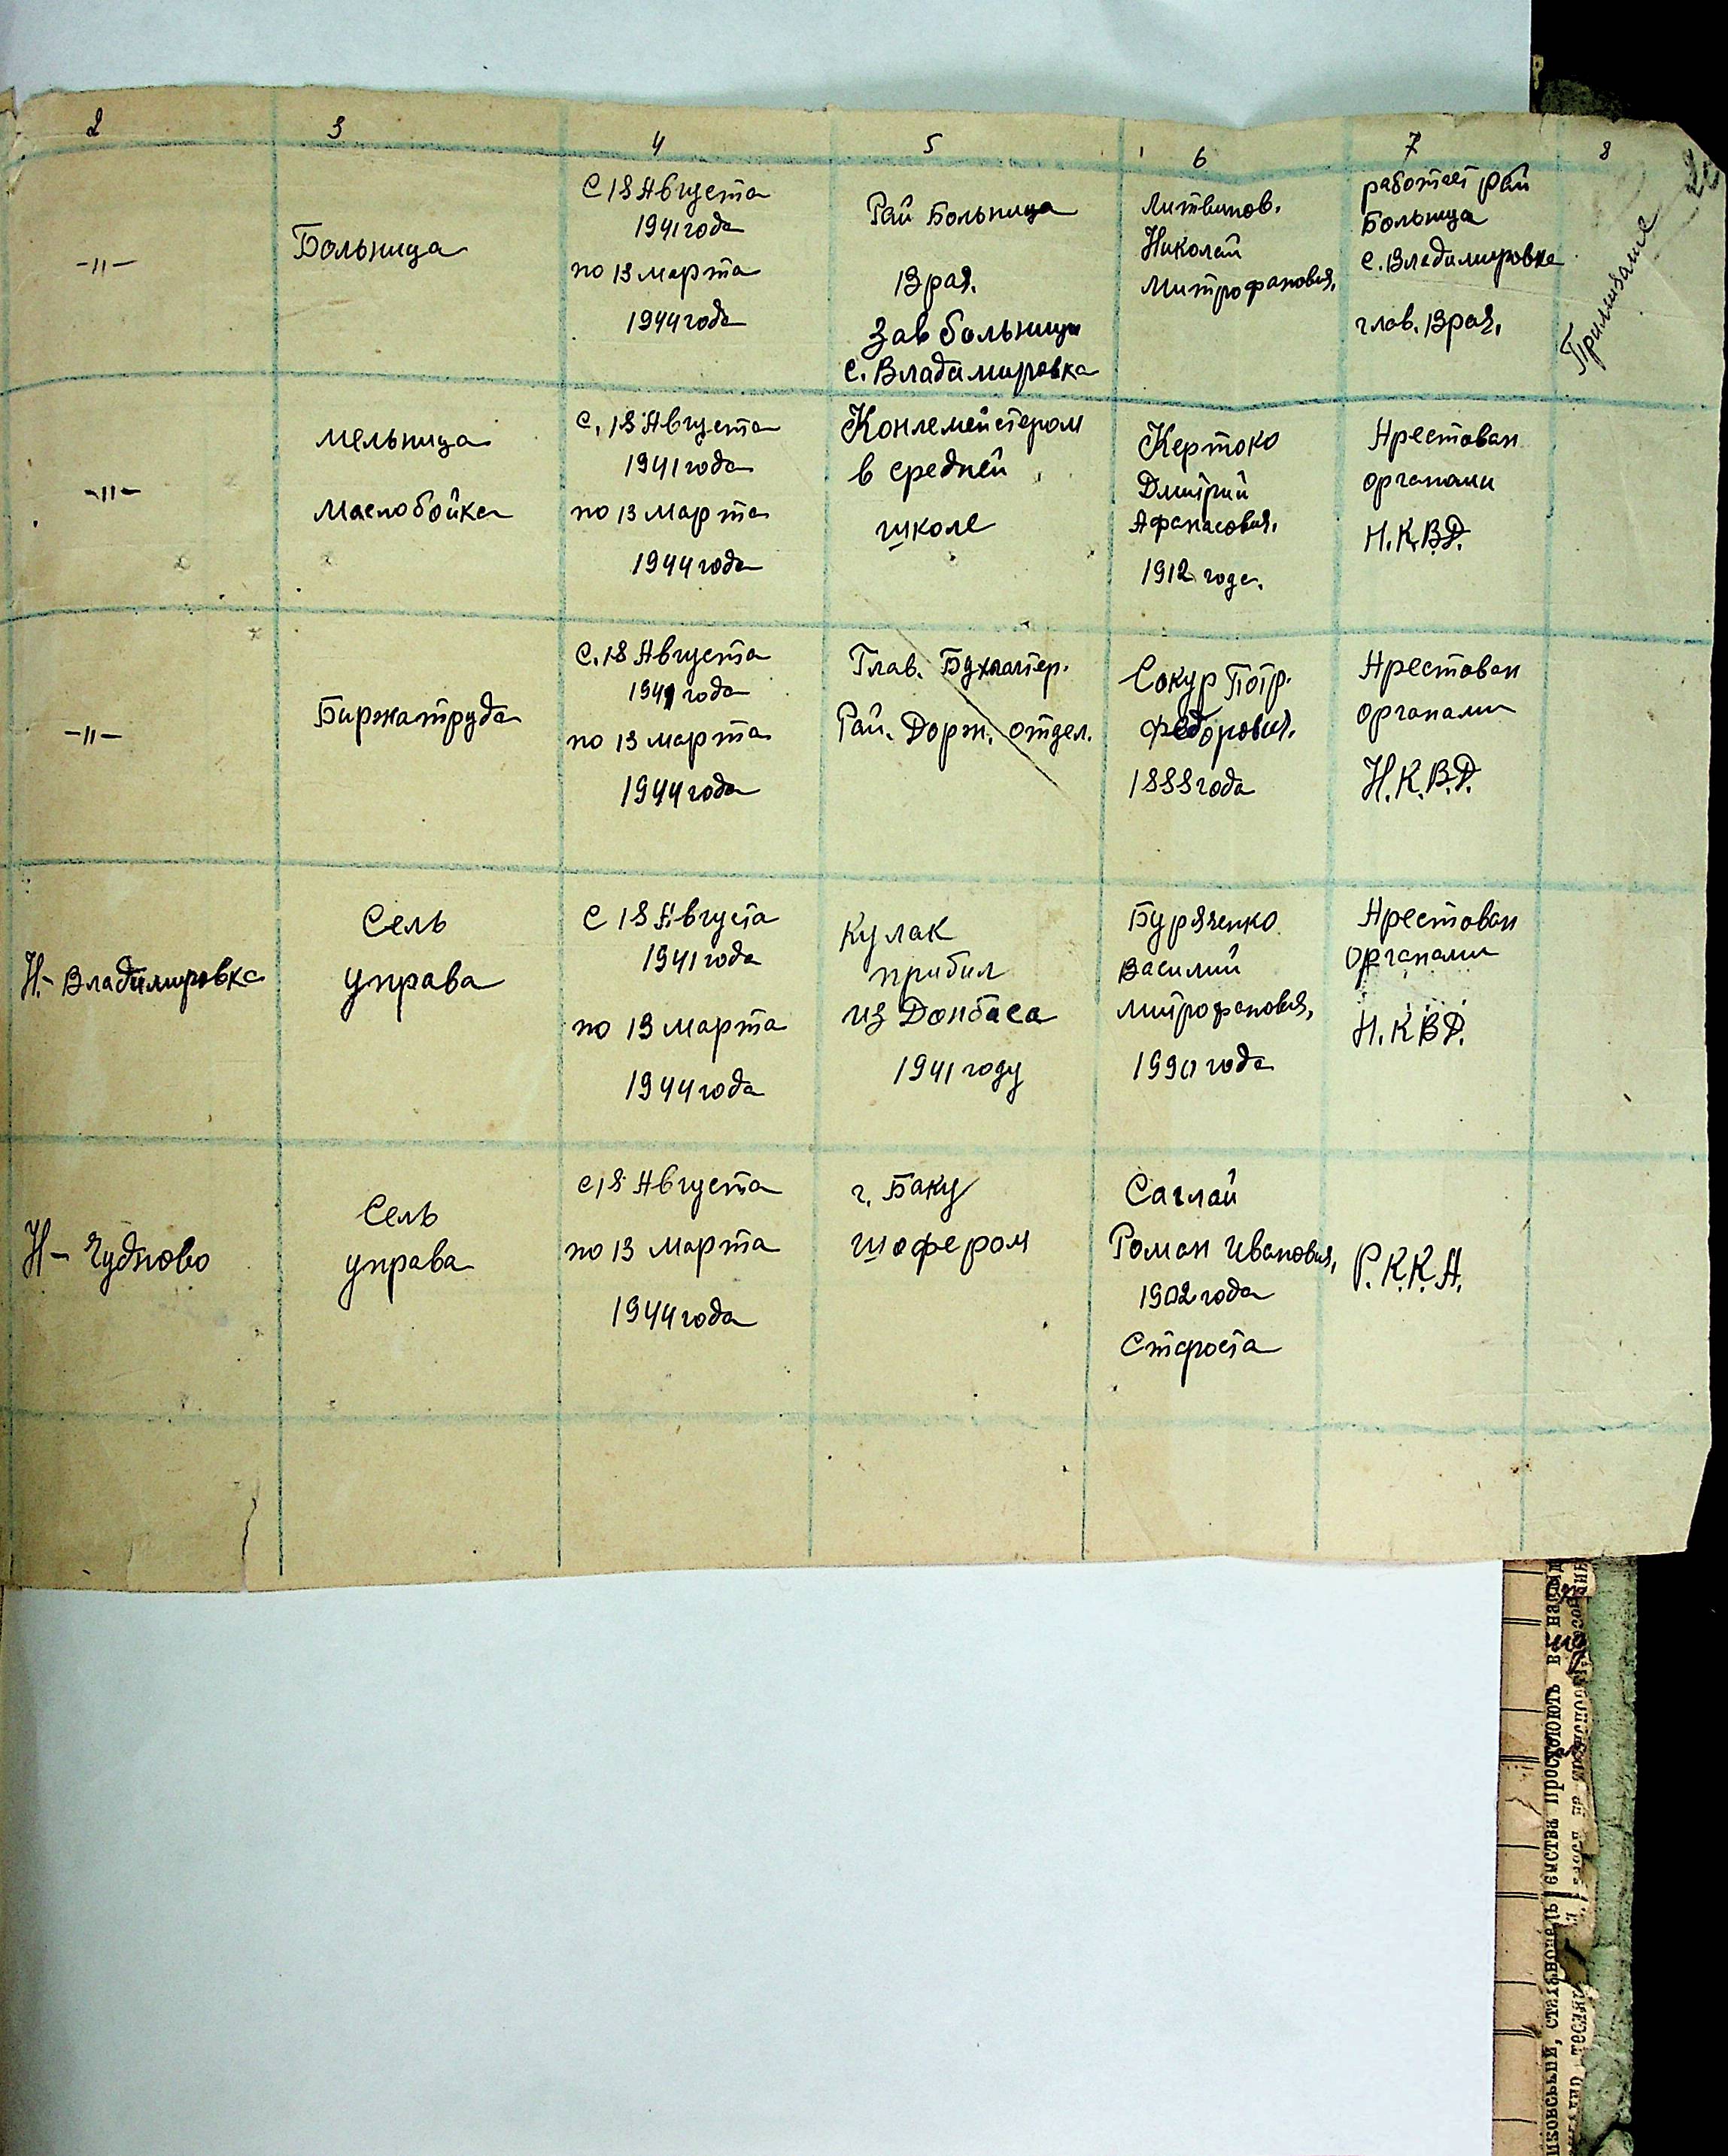 2 3 4 5 6 7 8
-"-
Больница
С 18 Августа
1941 года
по 13 марта
1944 года
Рай Больница
Врач.
Зав больници
с. Владимировка
Литвинов.
Николай
Митрофанович,
работает рай
Больница
с. Владимировка
глав. Врач,
Примичание
-"-
мельница
Маслобойка
с, 18 Августа
1941 года
по 13 марта
1944 года
в средней
школе
Кертоко
Дмитрий
Афанасович,
1912 года.
Арестован
органами
Н.К.В.Д.
-"-
Биржа труда
с. 18 Августа
1941 года
по 13 марта
1944 года
Глав. Бухгалтер.
Рай. Дорж. отдел.
Сокур Потр.
Федорович.
1888 года
Арестован
органами
Н.К.В.Д.
Н.- Владимировка
Сель
управа
С 18 Августа
1941 года
по 13 марта
1944 года
Кулак
прибил
из Донбаса
1941 году
Буряченко
Василий
митрофанович,
1990 года
Арестован
органами
Н.К.В.Д.
Н- Чудново
Сель
управа
с 18 Августа
по 13 марта
1944 года
г. Баку
шофером
Саглай
Роман Иванович,
1902 года
Староста
Р.К.К.А.